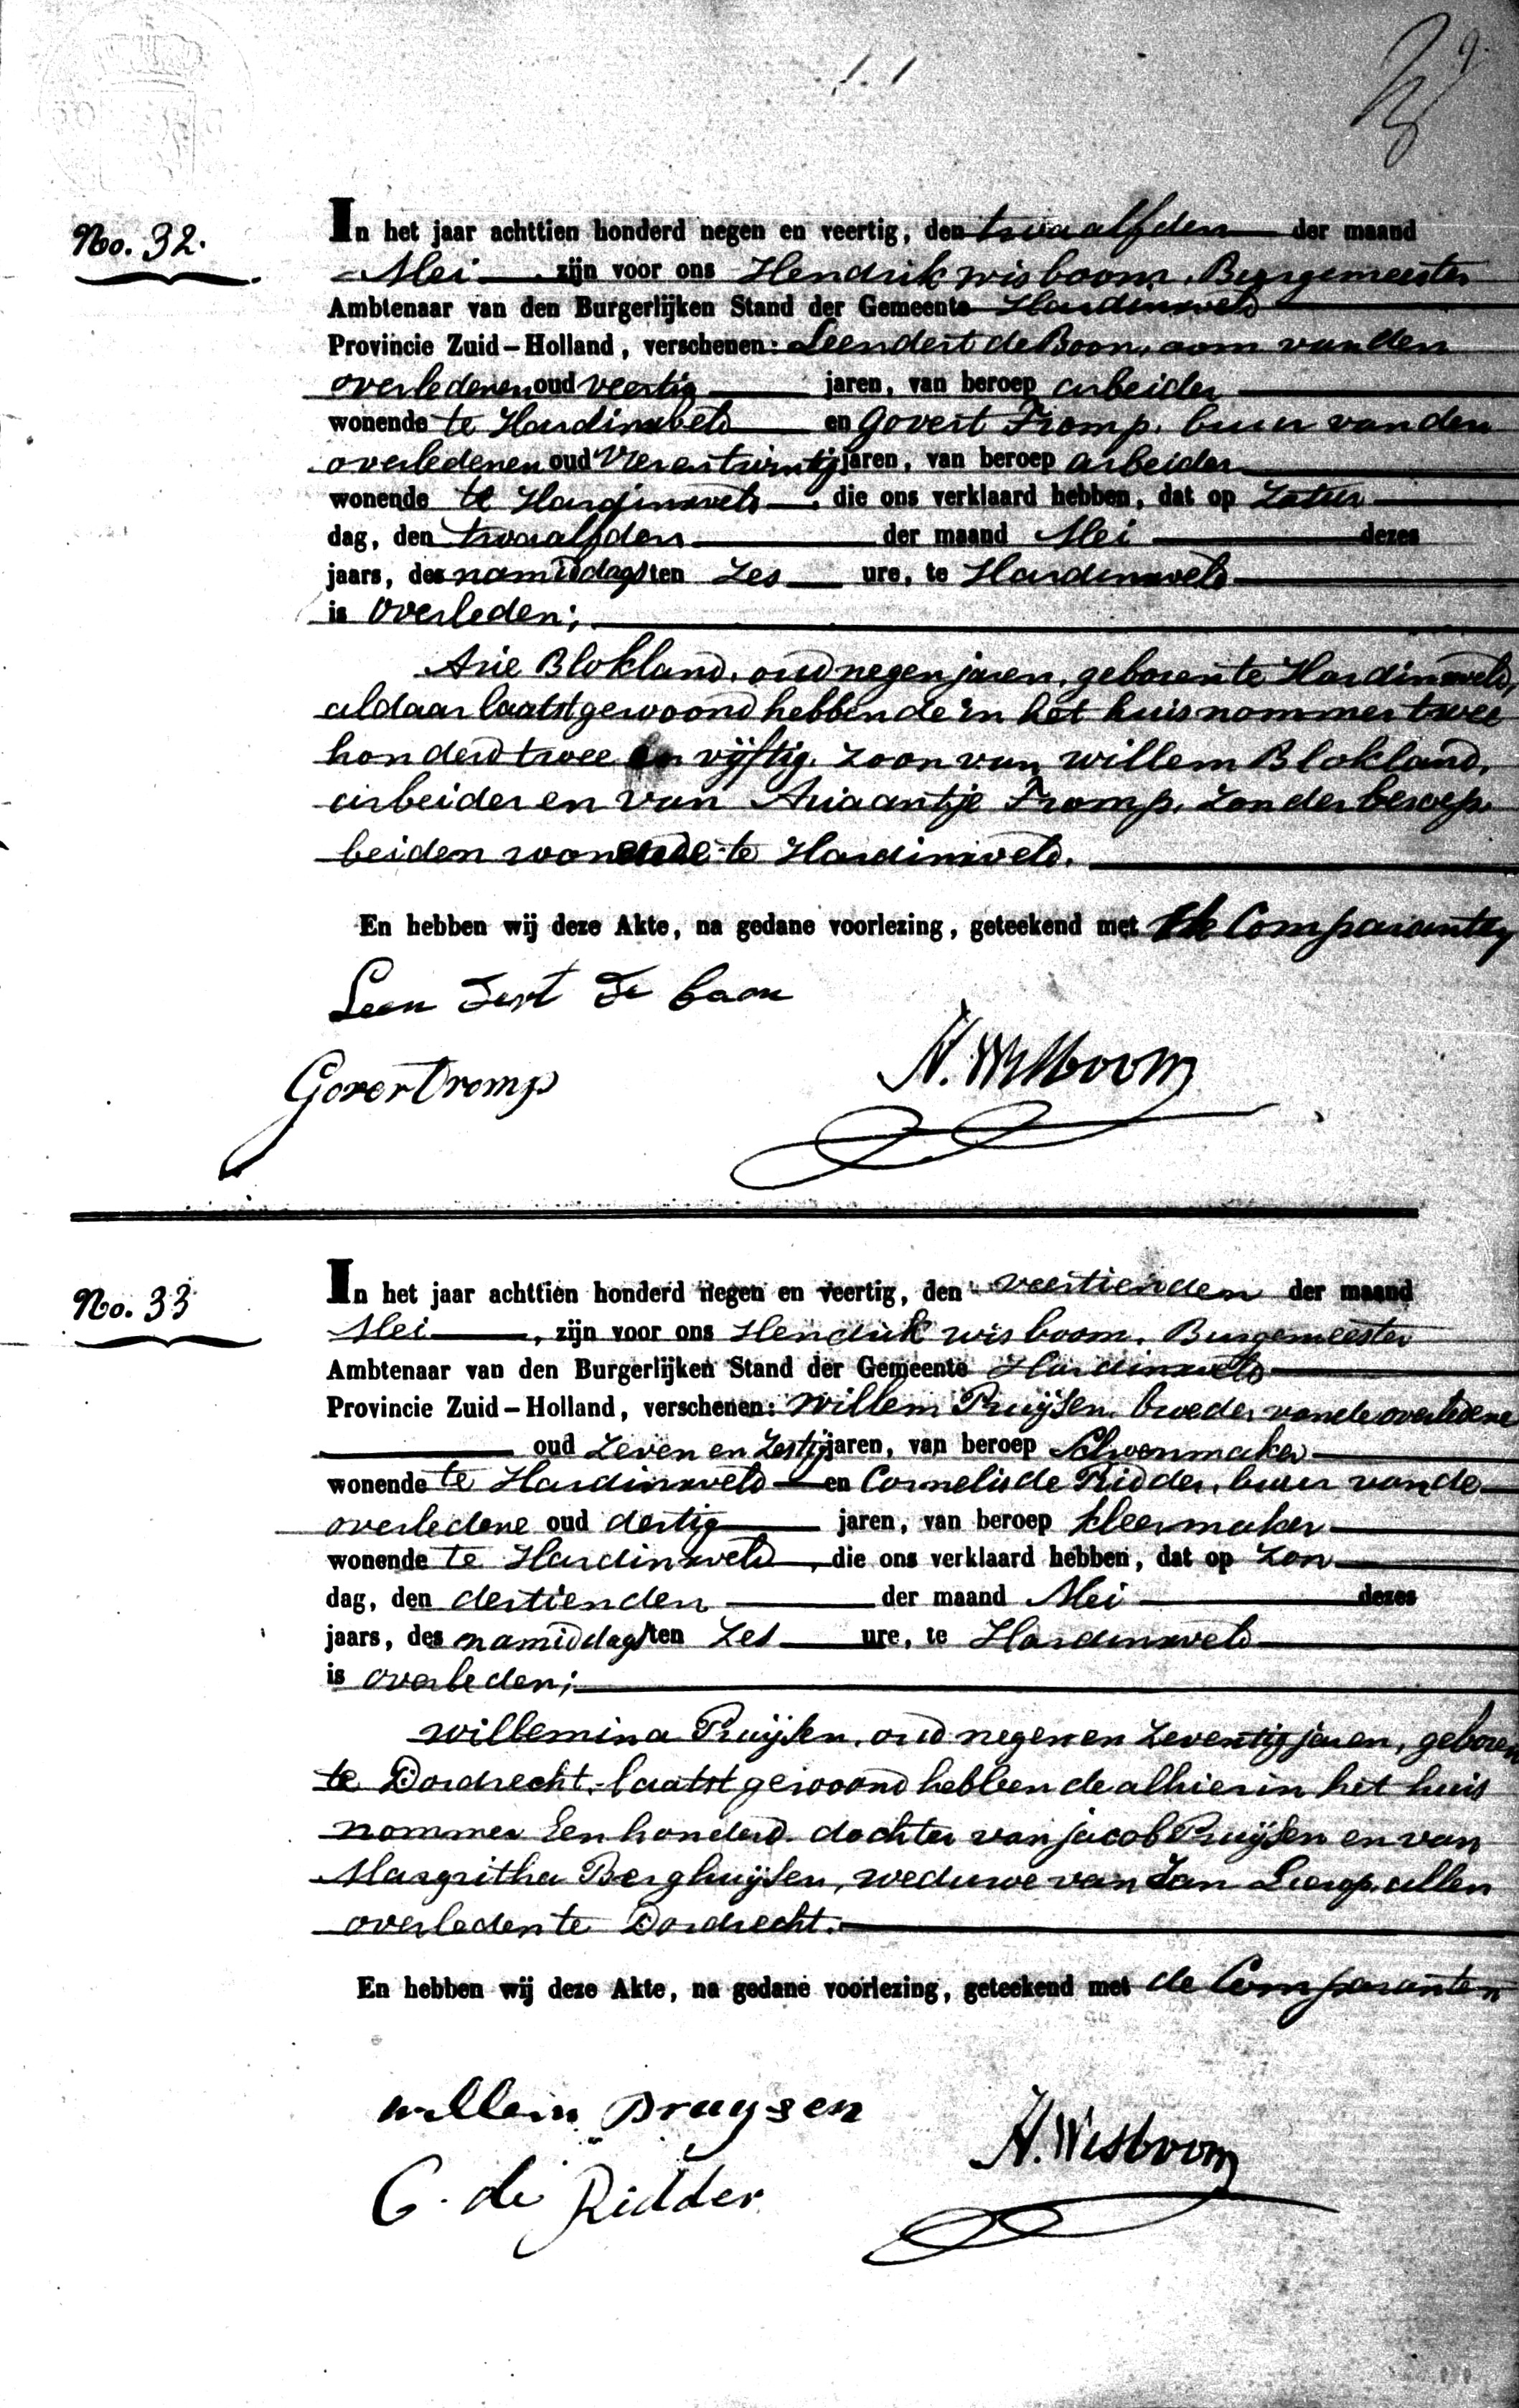 No. 32.
In het jaar achttien honderd negen en veertig, den twaalfden der maand
Mei, zijn voor ons Hendrik Wisboom, Burgemeester
Ambtenaar van den Burgerlijken Stand der Gemeente Hardinxveld
Provincie Zuid-Holland, verschenen: Leendert de Boon, oom van den
overledenen oud veertig jaren, van beroep arbeider
wonende te Hardinxveld en Govert Tromp, buur van den
overledenen oud Vierentwintig jaren, van beroep arbeider
wonende te Hardinxveld, die ons verklaard hebben, dat op Zatur
dag, den twaalfden der maand Mei dezes
jaars, des namiddags ten Zes ure, te Hardinxveld
is overleden;
Arie Blokland, oud negen jaren, geboren te Hardinxveld,
aldaar laatst gewoond hebbende in het huis nommer twee
honderd twee en vijftig, Zoon van Willem Blokland,
arbeider en van Ariaantje Tromp, Zonder beroep,
beiden wonende te Hardinxveld.
En hebben wij deze Akte, na gedane voorlezing, geteekend met de Comparanten
Leen dert de baan
Govert tromp
H. Wisboom
No. 33
In het jaar achttien honderd negen en veertig, den veertienden der maand
Mei, zijn voor ons Hendrik Wisboom, Burgemeester
Ambtenaar van den Burgerlijken Stand der Gemeente Hardinxveld
Provincie Zuid-Holland, verschenen: Willem Pruijsen, broeder van de overledene
oud Zeven en Zestig jaren, van beroep Schoenmaker
wonende te Hardinxveld en Cornelis de Ridder, buur van de
overledene oud dertig jaren, van beroep kleermaker
wonende te Hardinxveld, die ons verklaard hebben, dat op Zon
dag, den dertienden der maand Mei dezes
jaars, des namiddags ten Zes ure, te Hardinxveld
is overleden;
Willemina Pruijsen, oud negen en Zeventig jaren, geboren
te Dordrecht, laatst gewoond hebbende alhier in het huis
nommer Een honderd, dochter van Jacob Pruijsen en van
Margritha Berghuijsen, weduwe van Jan allen
overleden te Dordrecht.
En hebben wij deze Akte, na gedane voorlezing, geteekend met de Comparanten
Willem Pruysen
C. de Ridder
H. Wisboom